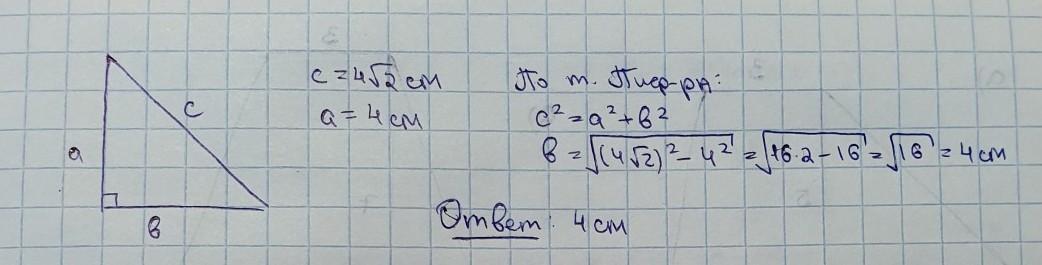 a
c
в
c = 4√2 см
a = 4 см
По т. Пиф-ра:
c² = a² + в²
в = √((4√2)² - 4²) = √(16·2 - 16) = √16 = 4 см
Ответ: 4 см